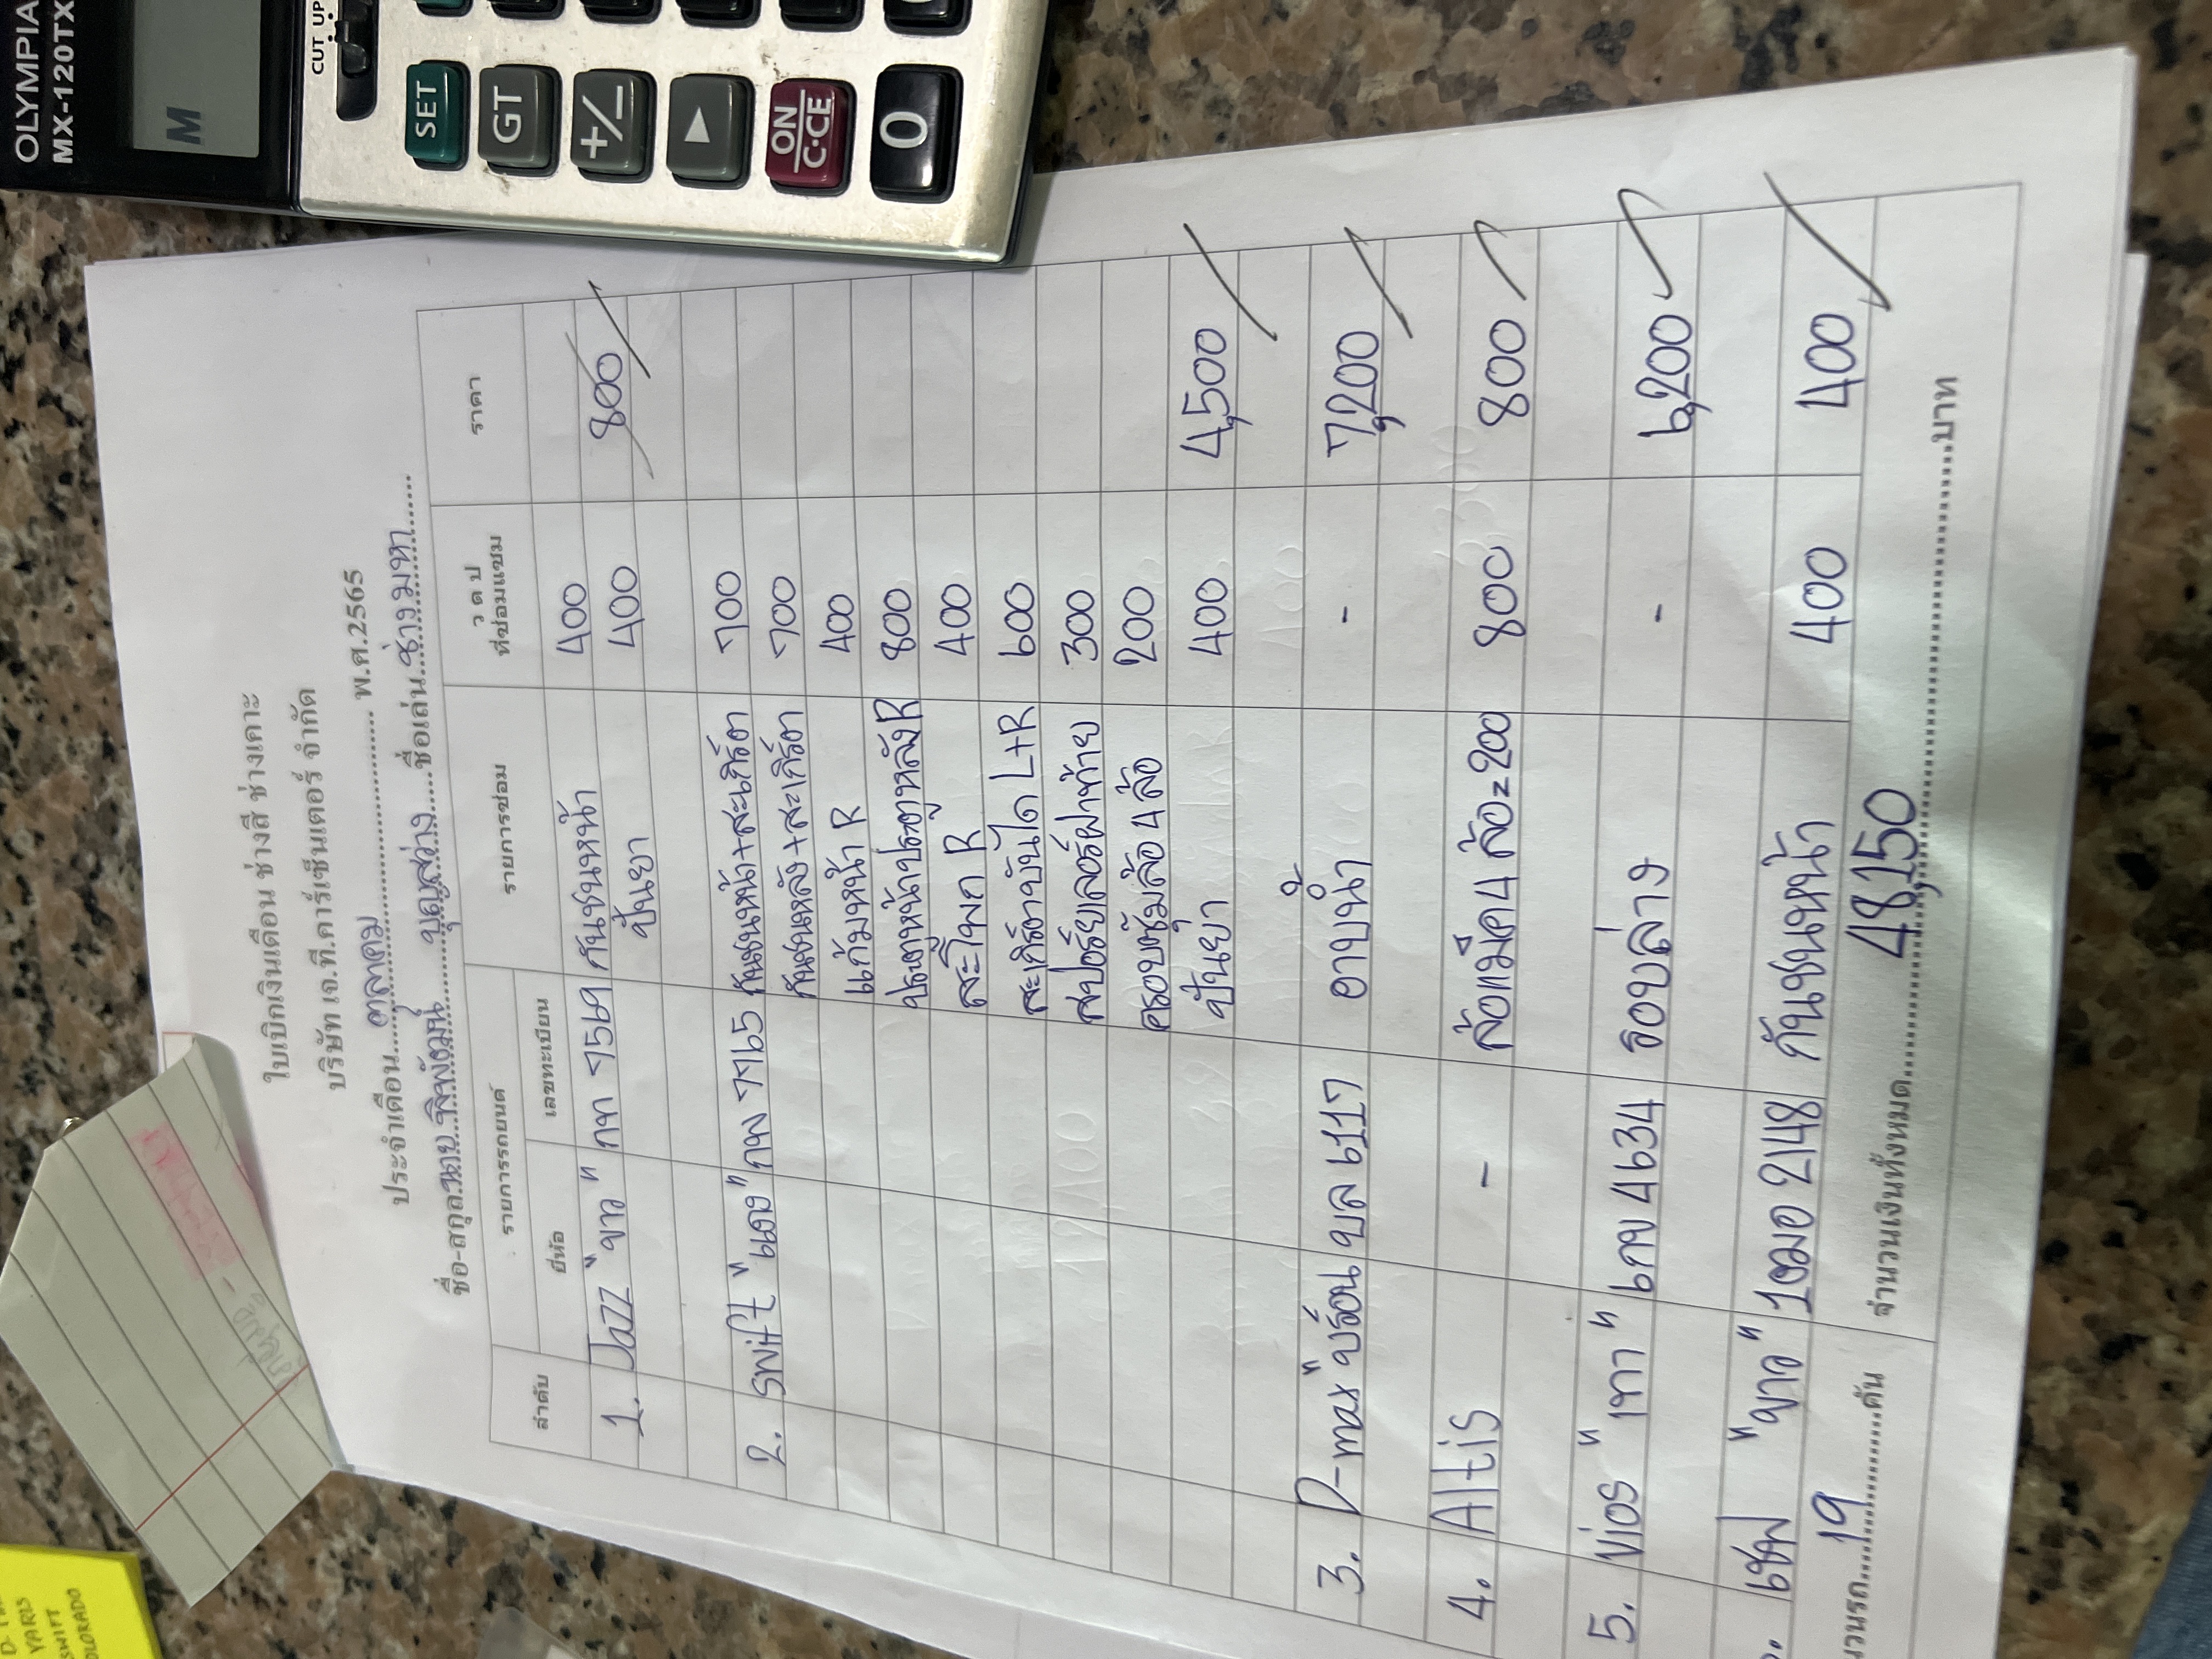 ใบเบิกเงินเดือน ช่างสี ช่างเคาะ
บริษัท เจ.ที.คาร์เซ็นเตอร์ จำกัด
ประจำเดือน ตุลาคม พ.ศ.2565
ชื่อ-สกุล นาย บุญสว่าง ชื่อเล่น ช่างมหา
ลำดับ รายการรถยนต์ รายการซ่อม ว ด ป ที่ซ่อมแซม ราคา
ยี่ห้อ เลขทะเบียน
1. Jazz "ขาว" กท 7569 กันชนหน้า 400
ปั่นยา 400 800
2. swift "แดง" กพ 7765 กันชนหน้า+สะเกิ๊ต 700
กันชนหลัง+สะเกิ๊ต 700
แก้มหน้า R 400
ประตูหน้าประตูหลัง R 800
สะโพก R 400
สะเกิ๊ตบันได L+R 600
สปอร์ยเลอร์ฝาท้าย 300
ครอบซุ้มล้อ 4 ล้อ 200
ปั่นยา 400 4,500
3. D-max "บร์อน" บล 6117 อาบน้ำ - 7,200
4. Altis - ล้อแม็ค 4 ล้อ=200 800 800
5. Vios "เทา" 6กข 4634 รอบล่าง - 6,200
เชฟ "ขาว" 1ฒอ 2148 กันชนหน้า 400 400
จำนวนรถ 19 คัน จำนวนเงินทั้งหมด 48,150 บาท
OLYMPIA
MX-120TX
CUT UP
M
SET
GT
+/−
▶
ON
C·CE
0
YARIS
SWIFT
COLORADO